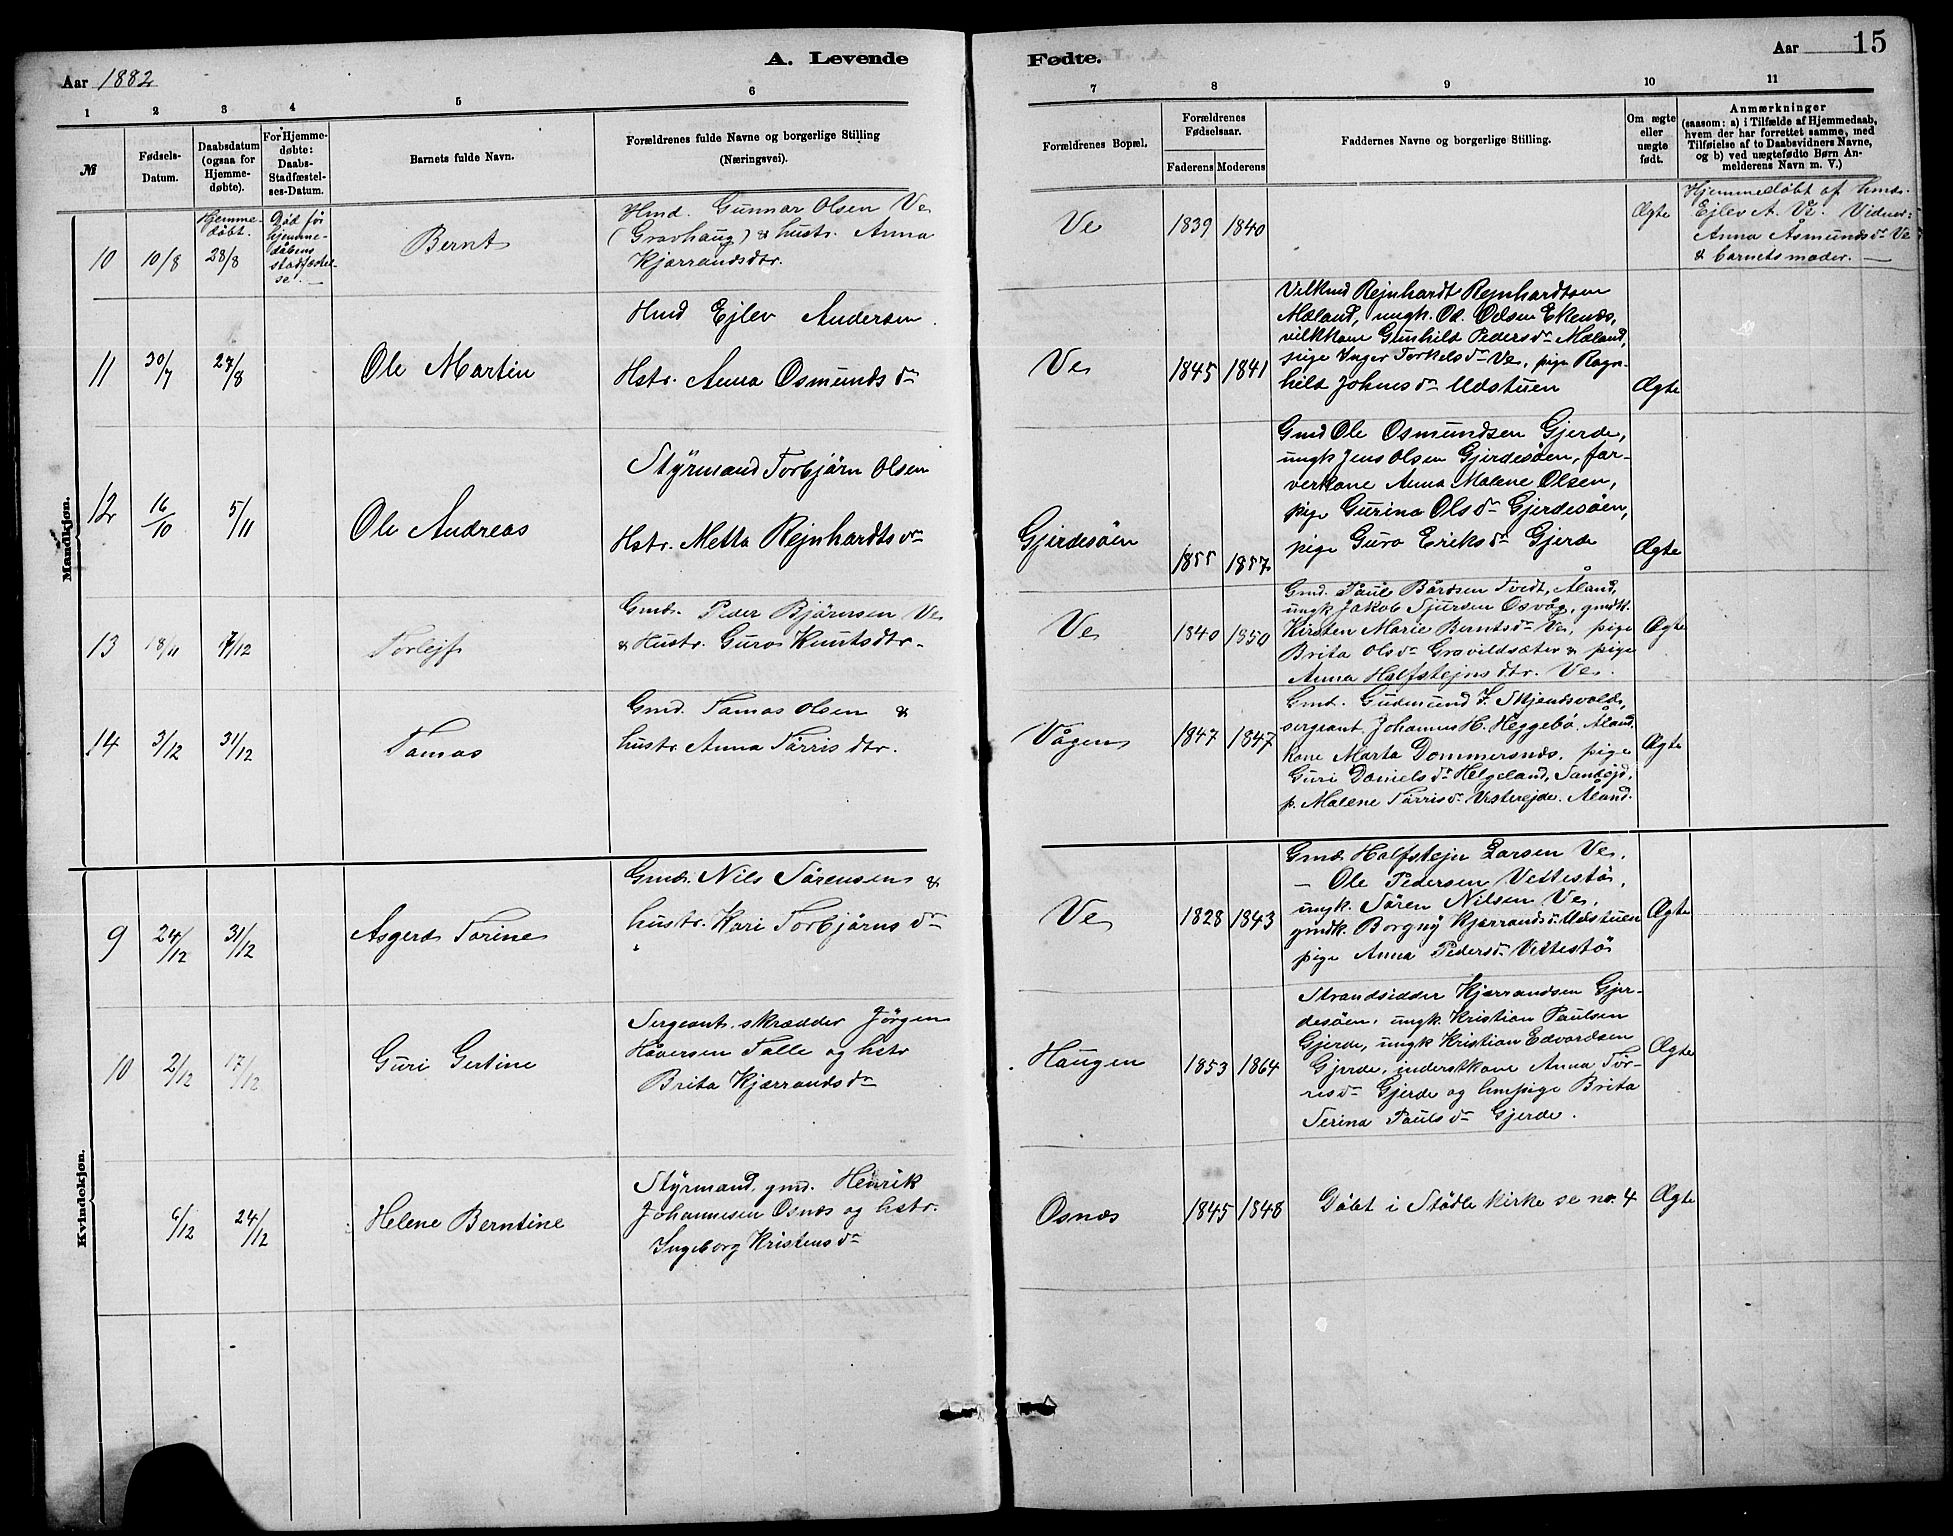 Aar 1882
A. Levende Fødte.
Aar 15
1 2 3 4 5 6 7 8 9 10 11
№
Fødsels-Datum.
Daabsdatum (ogsaa for Hjemmedøbte).
For Hjemmedøbte: Daabs-Stadfæstelses-Datum.
Barnets fulde Navn.
Forældrenes fulde Navne og borgerlige Stilling (Næringsvei).
Forældrenes Bopæl.
Forældrenes Fødselsaar.
Faderens Moderens
Faddernes Navne og borgerlige Stilling.
Om ægte eller uægte født.
Anmærkninger
(saasom: a) i Tilfælde af Hjemmedaab,
hvem der har forrettet samme, med
Tilføielse af to Daabsvidners Navne,
og b) ved uægtefødte Børn Anmelderens Navn m. V.)
Mandkjøn.
10 10/8 Hjemmedøbt. 28/8
Död før hjemmedåbens stadfæstelse. —
Bernt
Hmd. Gunnar Olsen Ve
(Gravhaug) & hustr. Anna
Kjærrandsdtr.
Ve 1839 1840 Ægte
Hjemmedøbt af hmd.
Ejlev A. Ve. Vidner:
Anna Åsmundsdr Ve
& barnets moder. —
11 30/7 27/8 Ole Martin
Hmd Ejlev Andersen
Hstr. Anna Osmundsdr
Ve 1845 1841
Velknd Rejnhardt Rejnhardtsen
Mæland, ungk. Ol. Odsen Ekenæs,
vilkkone Gunhild Pedersdr Mæland,
pige Inger Torkelsdr Ve, pige Ragn-
hild Johnsdr Udstuen
Ægte
12 16/10 5/11 Ole Andreas
Styrmand Torbjørn Olsen
Hstr. Metta Rejnhardtsdr
Gjerdesöen 1855 1857
Gmd Ole Osmundsen Gjerde,
ungk Jens Olsen Gjerdesöen, far-
verkone Anna Malene Olsen,
pige Gurina Olsdr Gjerdesöen,
pige Guro Eriksdr Gjerde
Ægte
13 18/11 4/12 Torlejf
Gmd. Peder Bjørnsen Ve
& Hustr. Guro Knutsdtr.
Ve 1840 1850
Gmd. Paul Bårdsen Tvedt, Åland,
ungk Jakob Sjursen Osvåg, gmdk.
Kirsten Marie Berntsdr Ve, pige
Brita Olsdr Gravildsæter & pige
Anna Halfstejnsdtr. Ve.
Ægte
14 3/12 31/12 Tamas
Gmd. Tamas Olsen &
hustr Anna Törrisdtr.
Vågen 1847 1847
Gmd. Gudmund I. Skjendsvold,
sergeant Johannes H. Heggebö. Åland.
kone Marta Dommersnæs, pige
Guri Danielsdr Helgeland, Sandejd,
p. Malene Törrisdr Vesterejde. Åland.
Ægte
Kvindekjøn.
9 24/12 31/12 Asgerd Torine
Gmd. Nils Sörensen &
hustr. Kari Torbjörnsdr
Ve 1828 1843
Gmd. Halfstejn Larsen Ve.
— Ole Pedersen Vettestö,
ungk. Sören Nilsen Ve.
gmdk. Borgny Kjærrandsdr Udstuen
pige Anna Pedersdr Vettestö
Ægte
10 2/12 17/12 Guri Gertine
Sergeant, skrædder Jörgen
Håversen Falle og hstr
Brita Kjærrandsdr
Haugen 1853 1864
Strandsidder Kjærrandsen Gjer-
desöen, ungk Kristian Paulsen
Gjerde, ungk Kristian Edvardsen
Gjerde, inderstkone Anna Tör-
risdr Gjerde og hmpige Brita
Serina Paulsdr Gjerde.
Ægte
6/12 24/12 Helene Berntine
Styrmand, gmd. Henrik
Johannesen Osnæs og hstr.
Ingeborg Kristensdr
Osnæs 1845 1848
Döbt i Stödle kirke se no. 4
Ægte